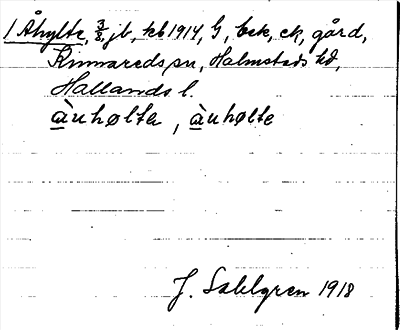 1 Åhylte, 3/8, jb, kb 1914, G, bek, ek, gård,
Kinnareds sn, Halmstads hd,
Hallands l.
àuhølta, àuhølte
J. Sahlgren 1918